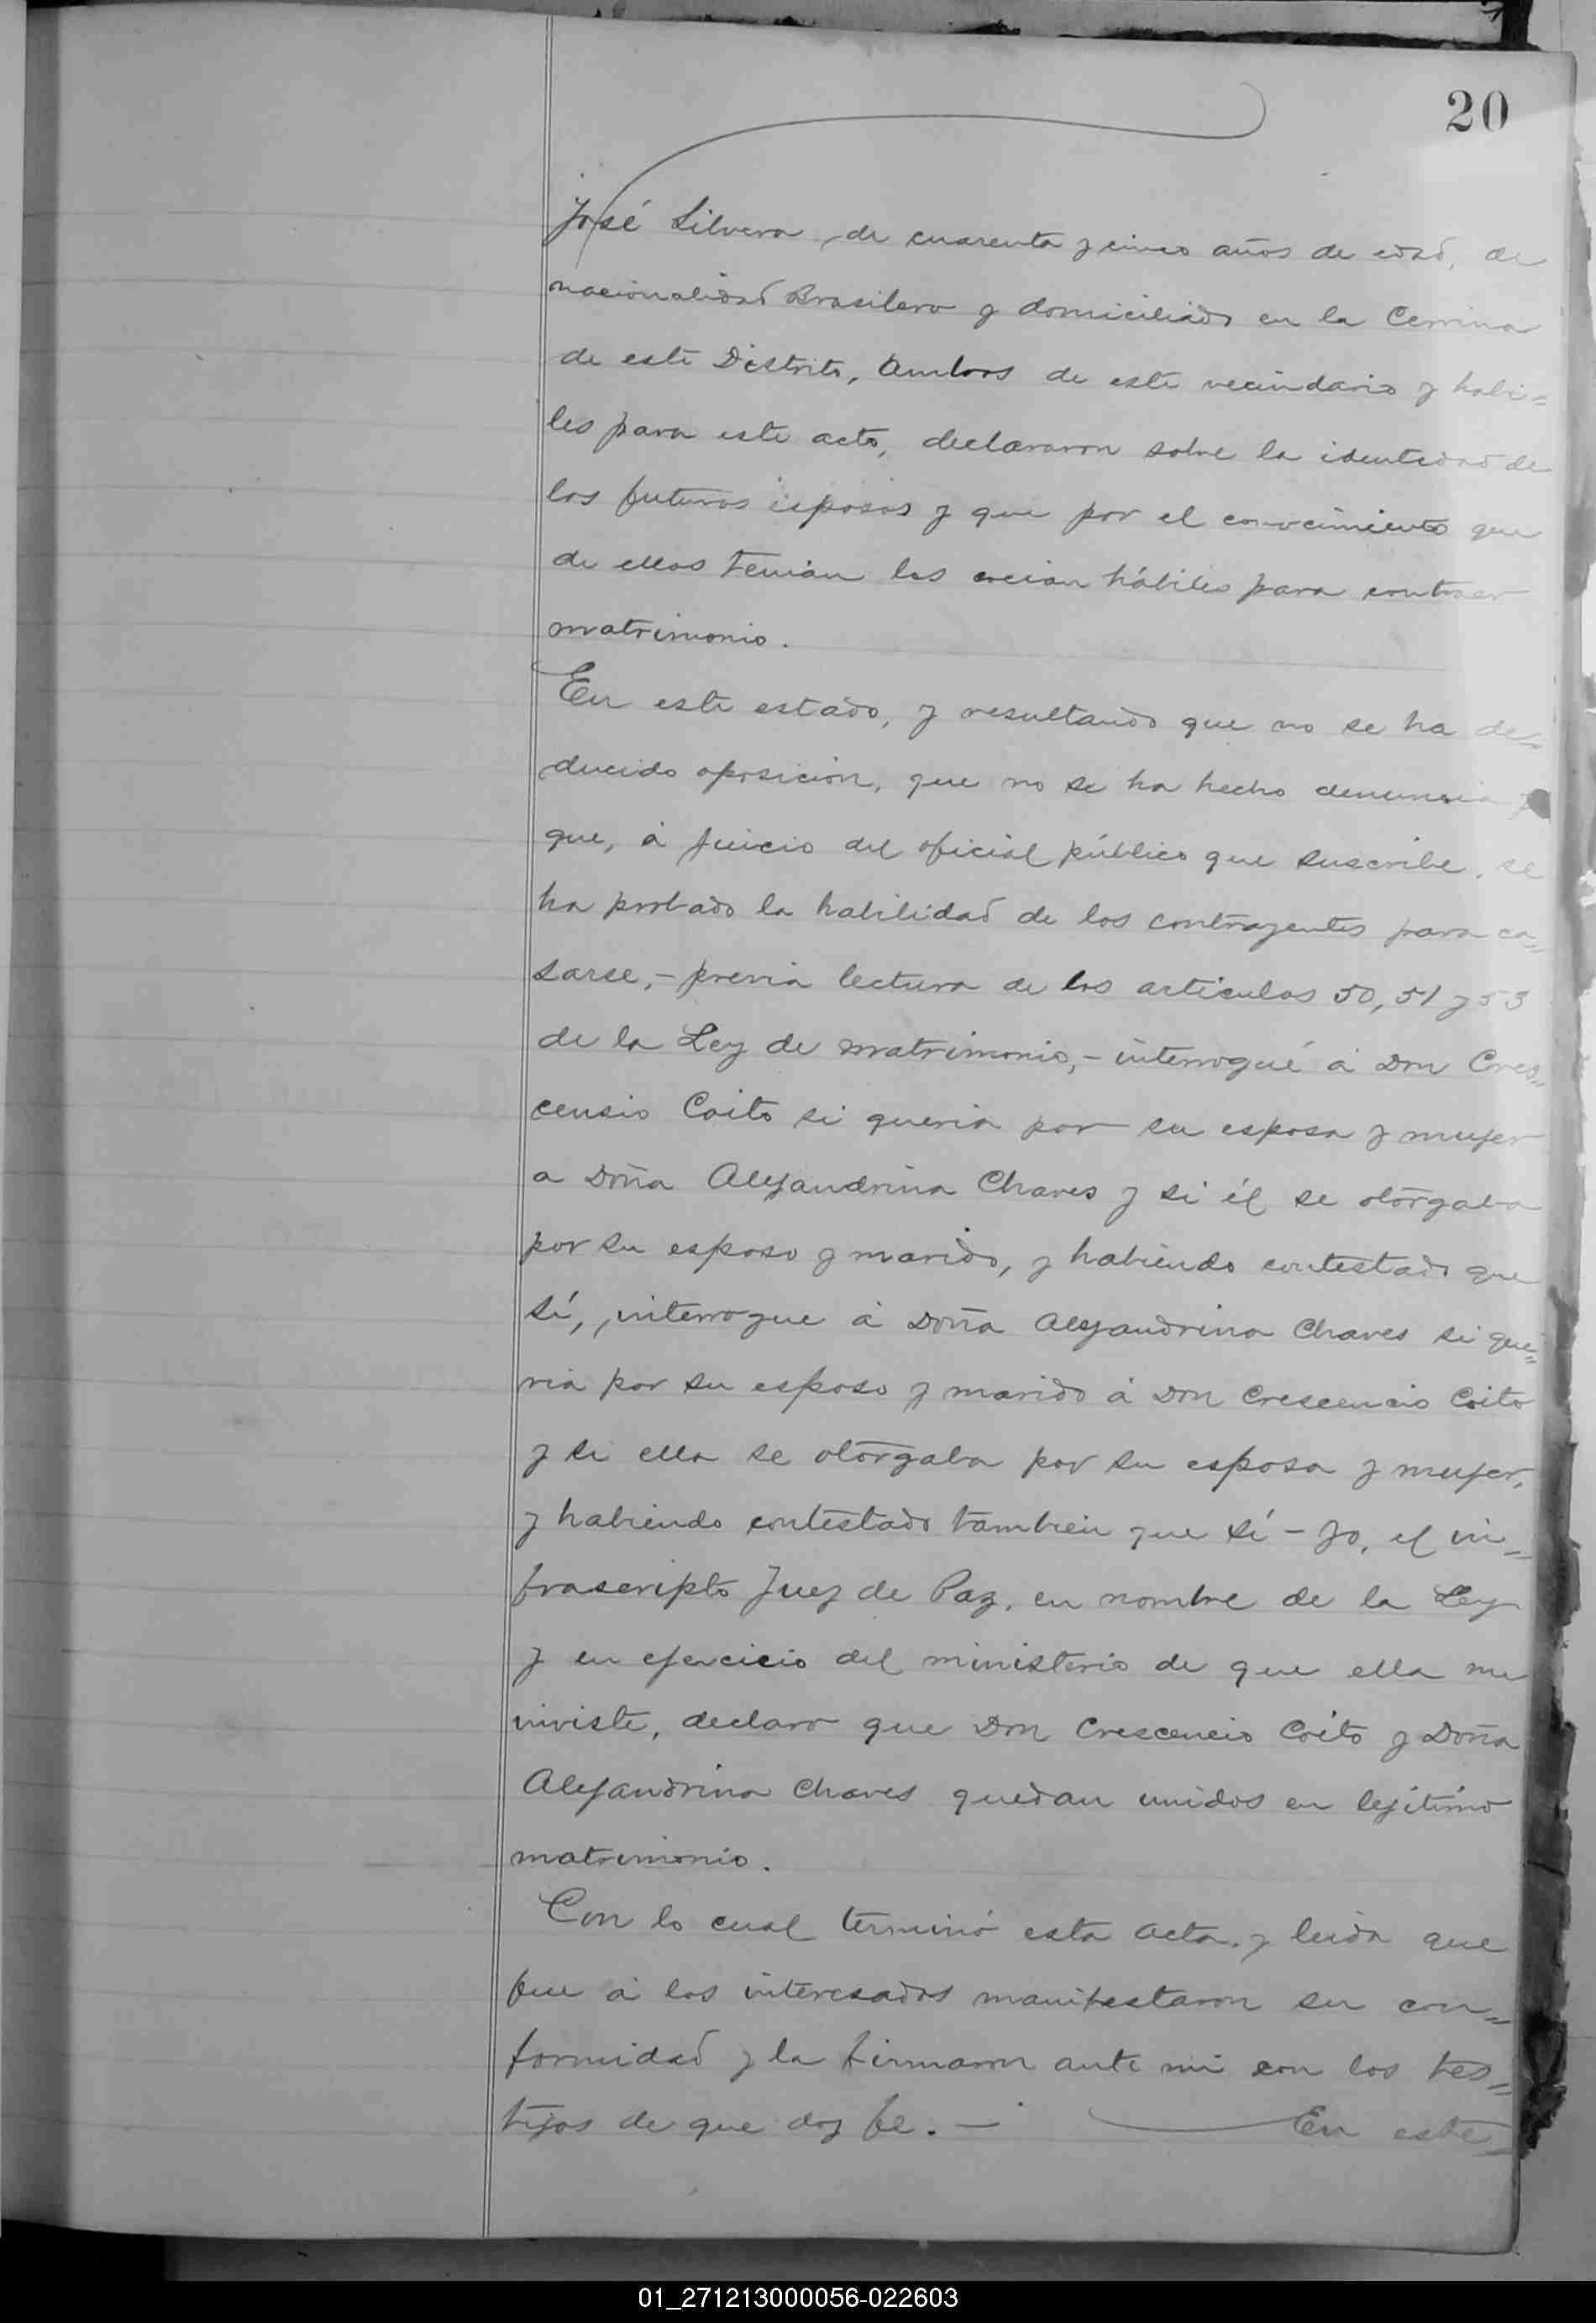 20
José Silvera, de cuarenta y cinco años de edad, de
nacionalidad Brasilero y domiciliado en la
de este Distrito, Ambos de este vecindario y habi=
les para este acto, declararon sobre la identidad de
los futuros esposos y que por el conocimiento que
de ellos tenian los creian hábiles para contraer
matrimonio.
En este estado, y resultando que no se ha de=
ducido oposicion, que no se ha hecho denuncia y
que, á juicio del oficial público que suscribe, se
ha probado la habilidad de los contrayentes para ca=
sarse,- previa lectura de los articulos 50, 51 y 53
de la Ley de matrimonio,- interrogué á Don Cres=
censio Coito si queria por su esposa y mujer
a Doña Alejandrina Chaves y si él se otorgaba
por su esposo y marido, y habiendo contestado que
sí, interrogue á Doña Alejandrina Chaves si que=
ria por su esposo y marido á Don Crescencio Coito
y si ella se otorgaba por su esposa y mujer,
y habiendo contestado tambien que sí - yo, el in=
frascripto Juez de Paz, en nombre de la Ley
y en ejercicio del ministerio de que ella me
inviste, declaro que Don Crescencio Coito y Doña
Alejandrina Chaves quedan unidos en lejitimo
matrimonio.
Con lo cual terminó esta acta, y leida que
fue á los interesados manifestaron su con=
formidad y la firmaron ante mi con los tes=
tijos de que doy fe. — En este
01_271213000056-022603